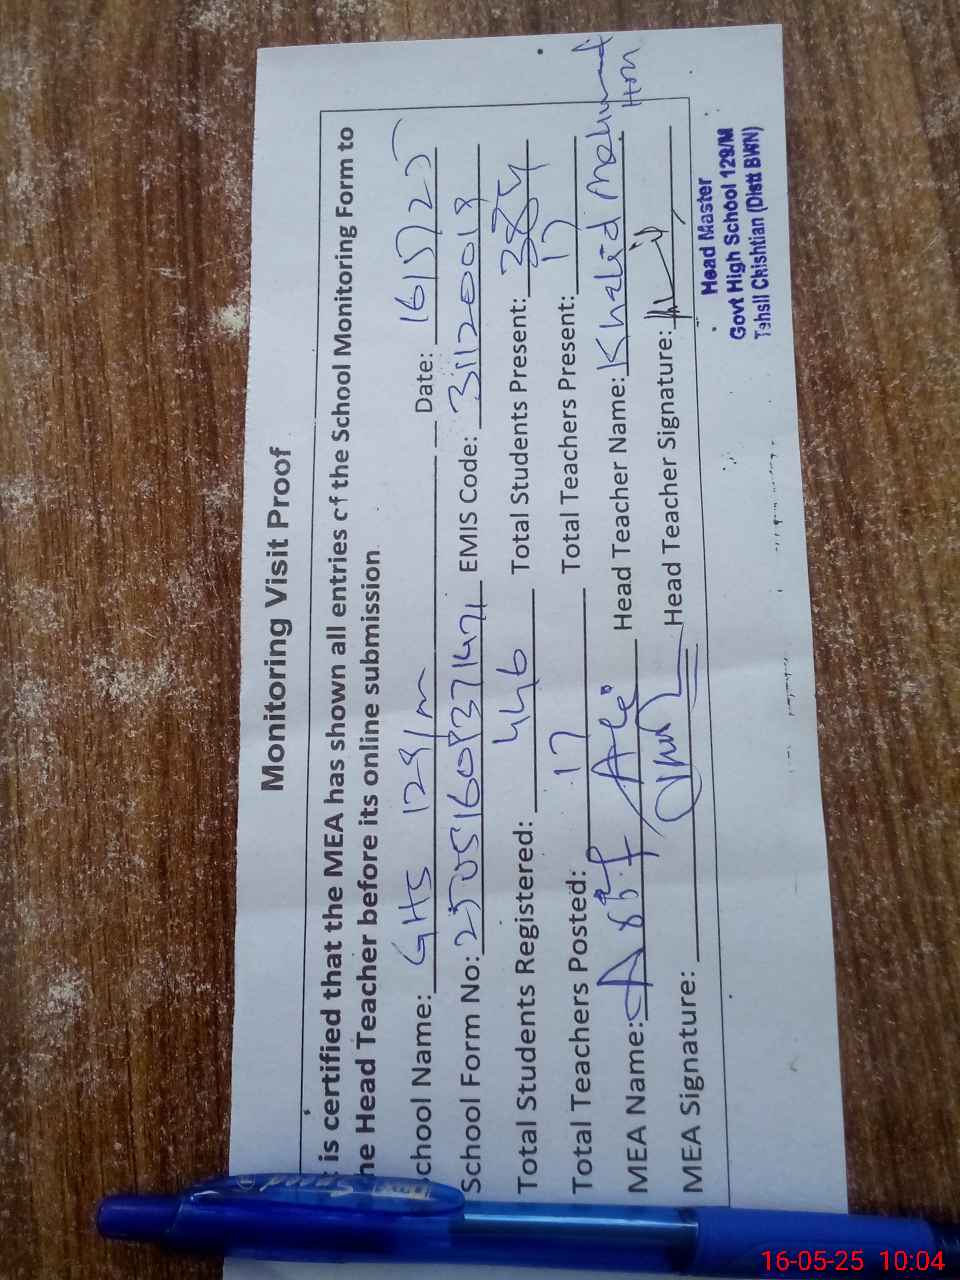 Monitoring Visit Proof
t is certified that the MEA has shown all entries of the School Monitoring Form to
he Head Teacher before its online submission
chool Name: GHS 129/m Date: 16/5/25
School Form No: EMIS Code: 31120018
Total Students Registered: 446 Total Students Present: 384
Total Teachers Posted: 17 Total Teachers Present: 17
MEA Name: Ali Head Teacher Name: Khalid Mahmood
MEA Signature: Head Teacher Signature:
Head Master
Govt High School 129/M
Tehsil Chishtian (Distt BWN)
16-05-25 10:04